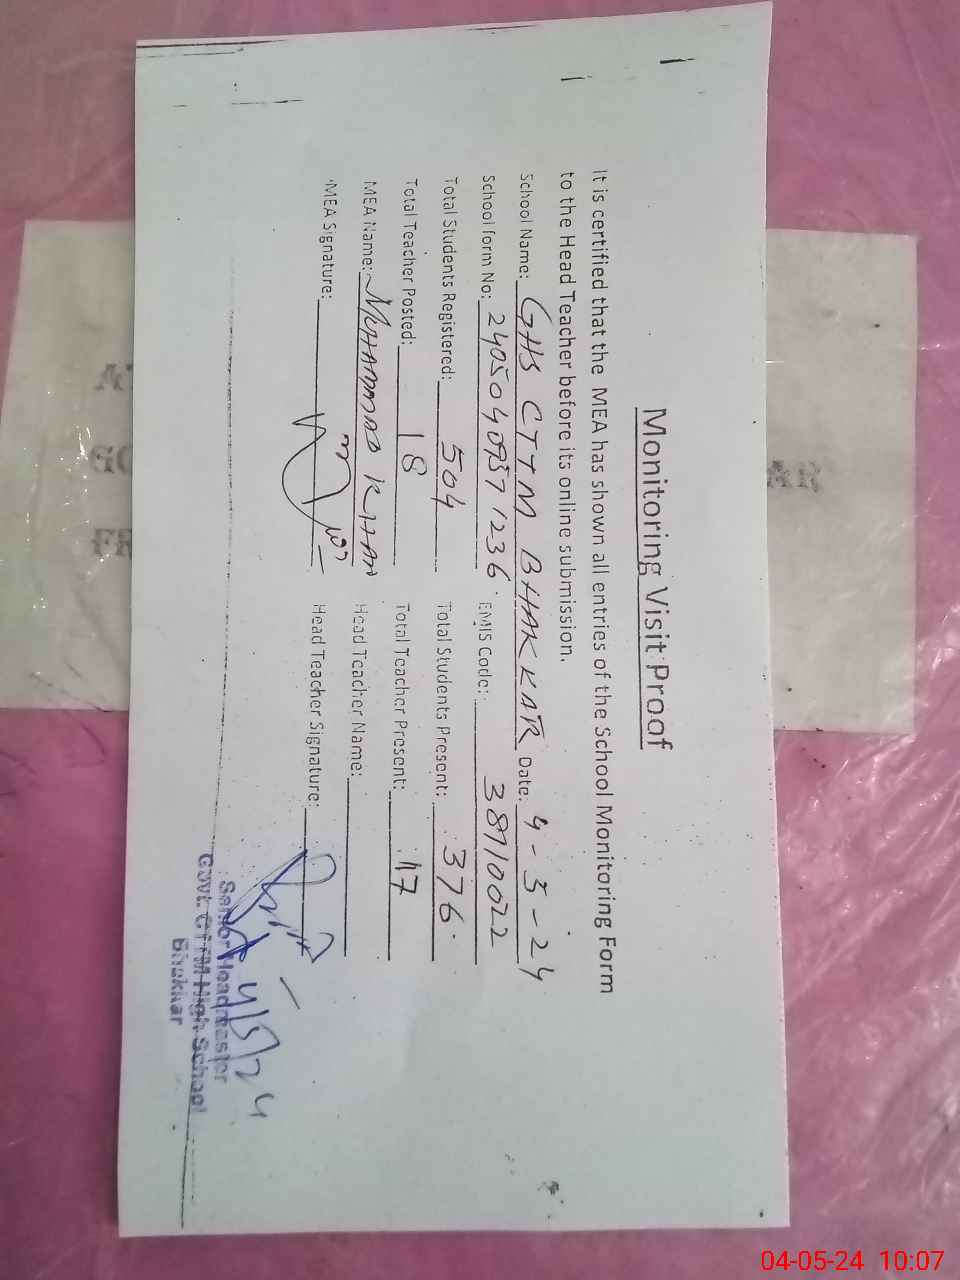 Monitoring Visit Proof
It is certified that the MEA has shown all entries of the School Monitoring Form
to the Head Teacher before its online submission.
School Name: GHS CTTM BHAKKAR Date: 4-5-24
School form No: EMIS Code: 38710022
Total Students Registered: 504 Total Students Present: 376
Total Teacher Posted: 18 Total Teacher Present: 17
MEA Name: MUHAMMAD KHAN Head Teacher Name:
MEA Signature: Head Teacher Signature:
4/5/24
Senior Headmaster
Govt: CTTM High School
Bhakkar
04-05-24 10:07